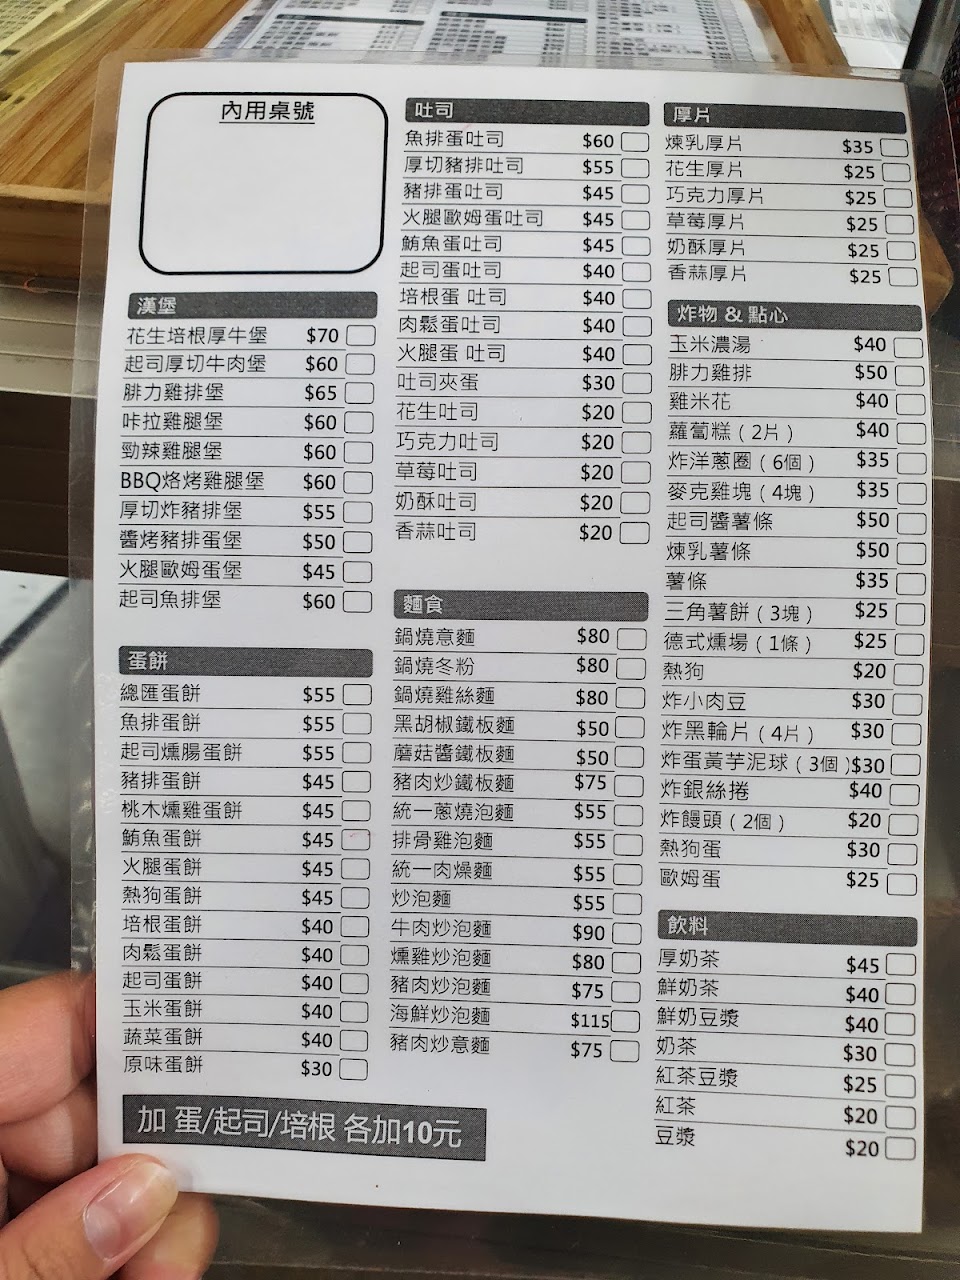 內用桌號
漢堡
花生培根厚牛堡 $70
起司厚切牛肉堡 $60
腓力雞排堡 $65
咔拉雞腿堡 $60
勁辣雞腿堡 $60
BBQ烙烤雞腿堡 $60
厚切炸豬排堡 $55
醬烤豬排蛋堡 $50
火腿歐姆蛋堡 $45
起司魚排堡 $60
蛋餅
總匯蛋餅 $55
魚排蛋餅 $55
起司燻腸蛋餅 $55
豬排蛋餅 $45
桃木燻雞蛋餅 $45
鮪魚蛋餅 $45
火腿蛋餅 $45
熱狗蛋餅 $45
培根蛋餅 $40
肉鬆蛋餅 $40
起司蛋餅 $40
玉米蛋餅 $40
蔬菜蛋餅 $40
原味蛋餅 $30
加 蛋/起司/培根 各加10元
吐司
魚排蛋吐司 $60
厚切豬排吐司 $55
豬排蛋吐司 $45
火腿歐姆蛋吐司 $45
鮪魚蛋吐司 $45
起司蛋吐司 $40
培根蛋 吐司 $40
肉鬆蛋吐司 $40
火腿蛋 吐司 $40
吐司夾蛋 $30
花生吐司 $20
巧克力吐司 $20
草莓吐司 $20
奶酥吐司 $20
香蒜吐司 $20
麵食
鍋燒意麵 $80
鍋燒冬粉 $80
鍋燒雞絲麵 $80
黑胡椒鐵板麵 $50
蘑菇醬鐵板麵 $50
豬肉炒鐵板麵 $75
統一蔥燒泡麵 $55
排骨雞泡麵 $55
統一肉燥麵 $55
炒泡麵 $55
牛肉炒泡麵 $90
燻雞炒泡麵 $80
豬肉炒泡麵 $75
海鮮炒泡麵 $115
豬肉炒意麵 $75
厚片
煉乳厚片 $35
花生厚片 $25
巧克力厚片 $25
草莓厚片 $25
奶酥厚片 $25
香蒜厚片 $25
炸物 & 點心
玉米濃湯 $40
腓力雞排 $50
雞米花 $40
蘿蔔糕（2片） $40
炸洋蔥圈（6個） $35
麥克雞塊（4塊） $35
起司醬薯條 $50
煉乳薯條 $50
薯條 $35
三角薯餅（3塊） $25
德式燻場（1條） $25
熱狗 $20
炸小肉豆 $30
炸黑輪片（4片） $30
炸蛋黃芋泥球（3個）$30
炸銀絲捲 $40
炸饅頭（2個） $20
熱狗蛋 $30
歐姆蛋 $25
飲料
厚奶茶 $45
鮮奶茶 $40
鮮奶豆漿 $40
奶茶 $30
紅茶豆漿 $25
紅茶 $20
豆漿 $20